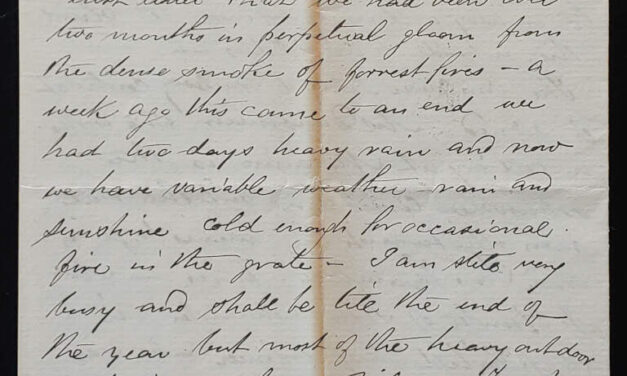 that we had been over
two months in perpetual gloom from
the dense smoke of forrest fires - a
week ago this came to an end we
had two days heavy rain and now
we have variable weather rain and
sunshine cold enough for occasional
fire in the grate - I am stile very
busy and shall be tile the end of
the year but most of the heavy outdoor